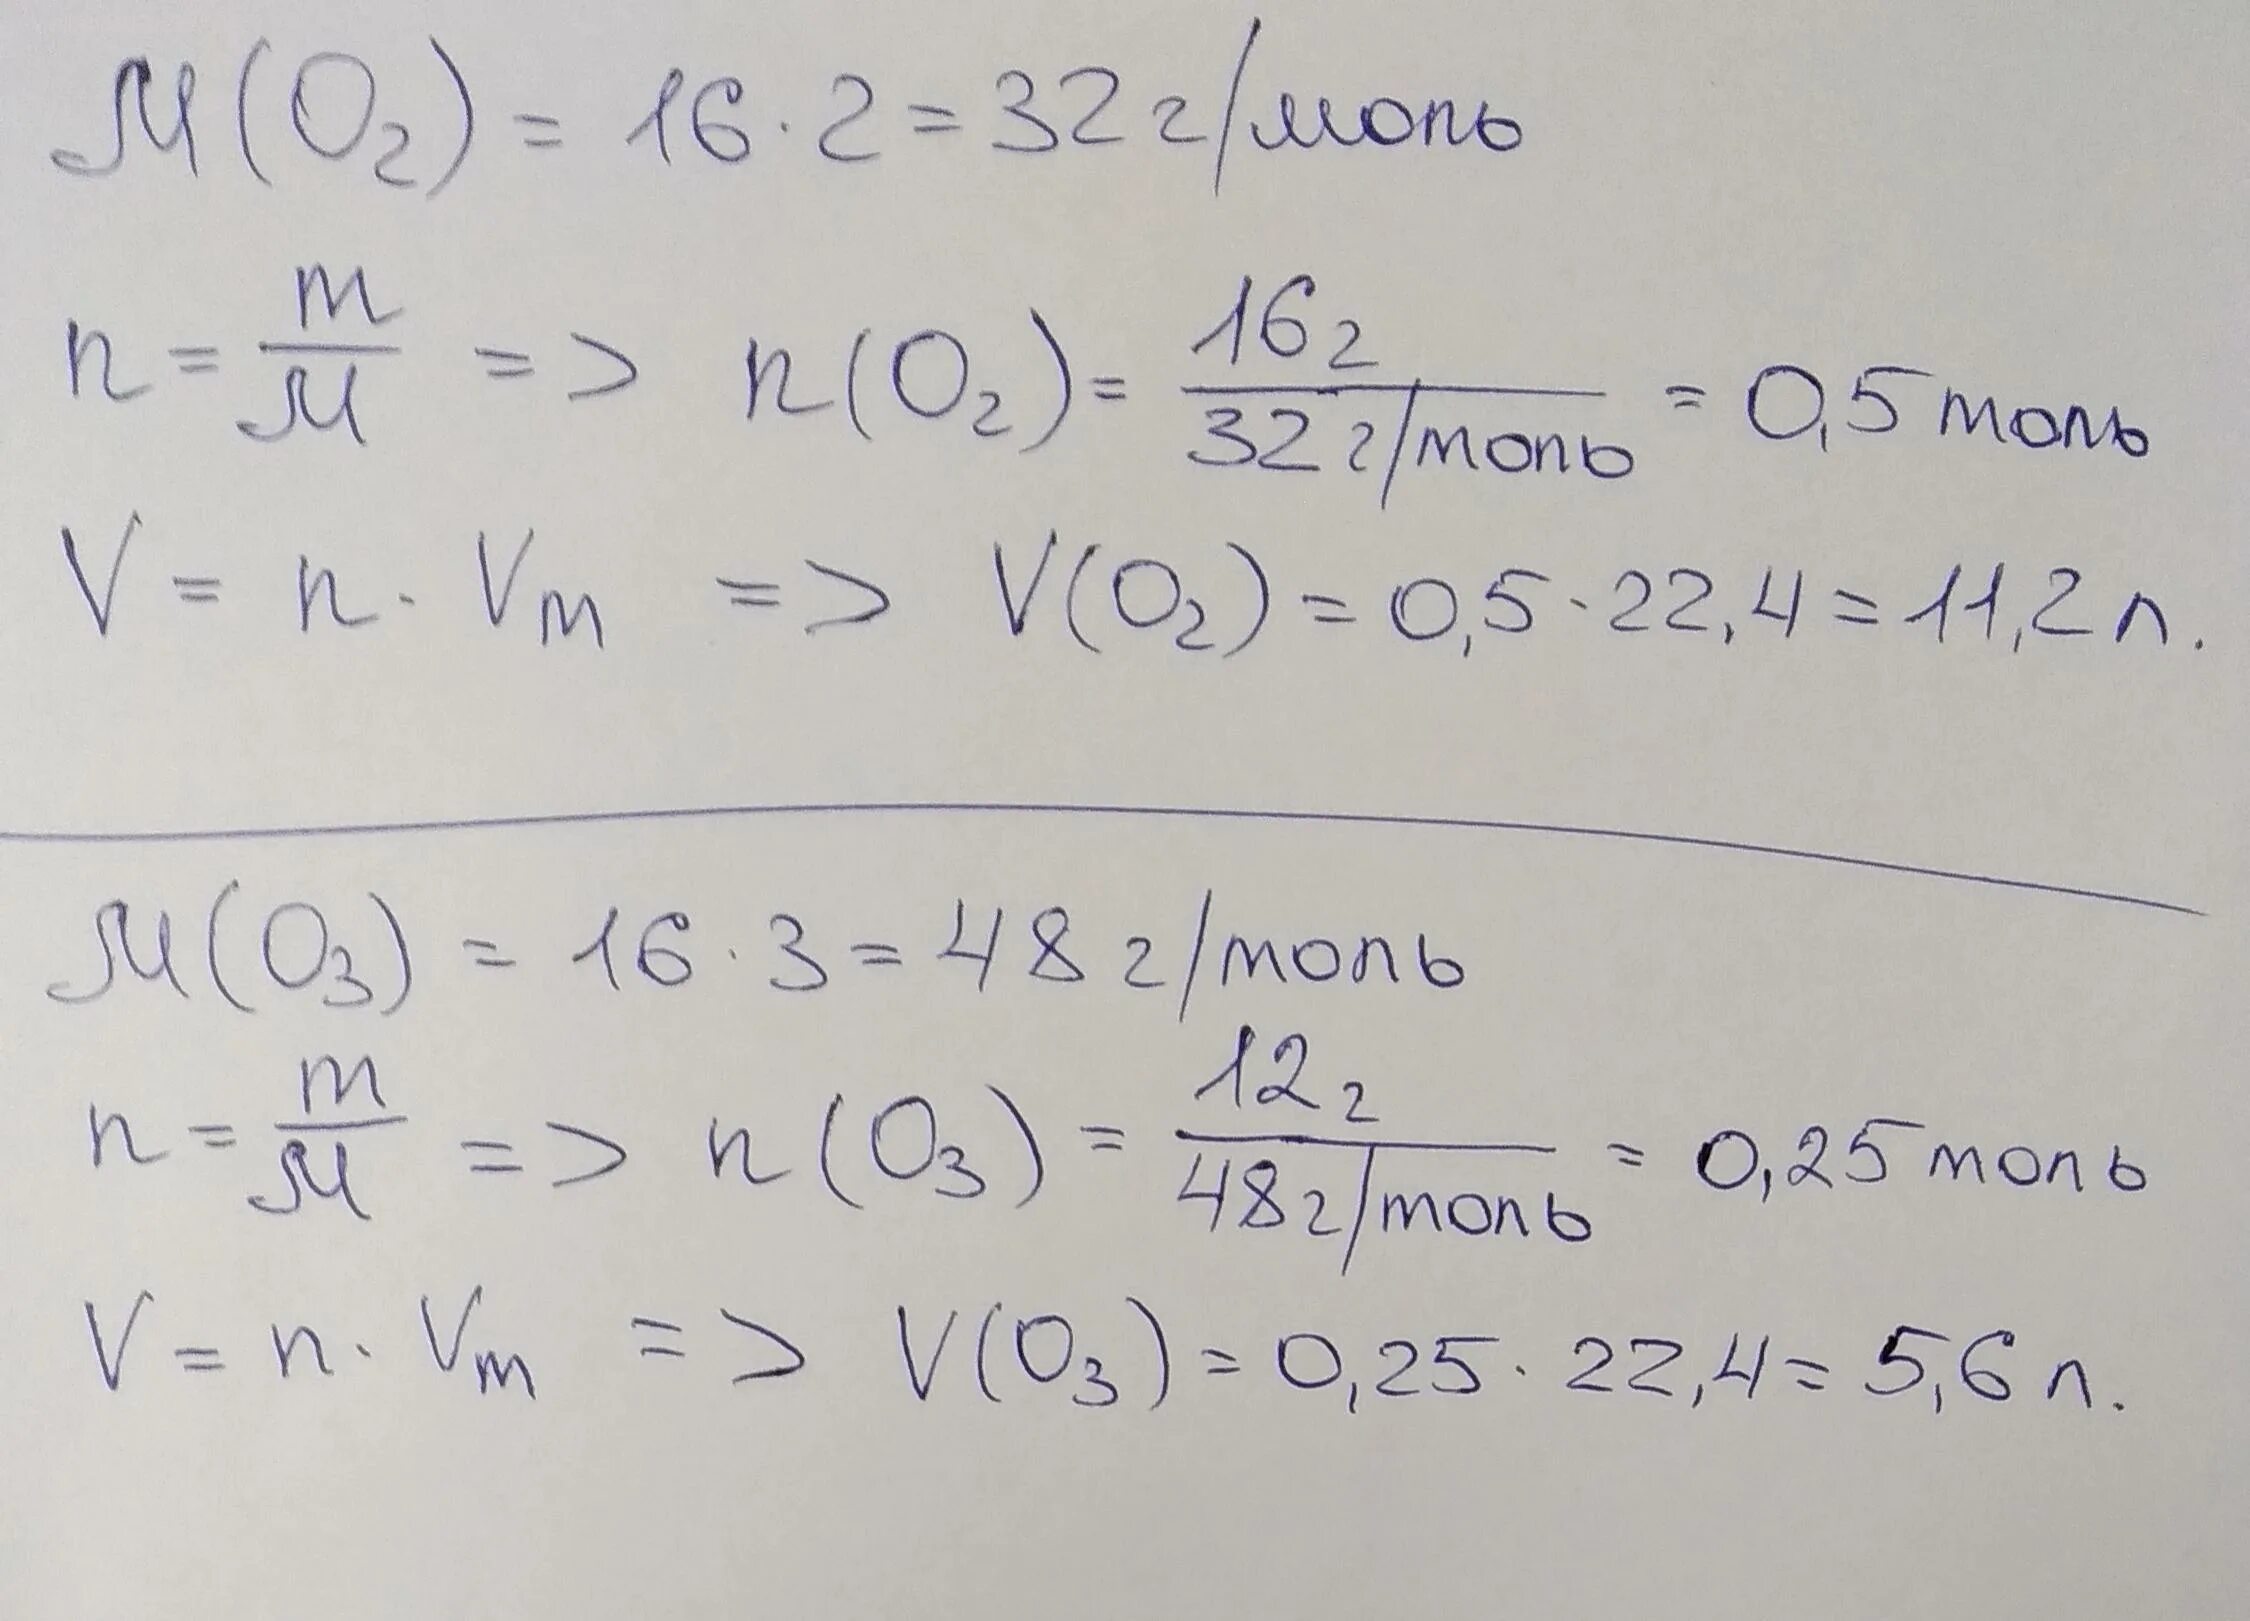 M(O₂) = 16 · 2 = 32 г/моль
n = m/M => n(O₂) = 16 г / 32 г/моль = 0,5 моль
V = n · Vm => V(O₂) = 0,5 · 22,4 = 11,2 л.
M(O₃) = 16 · 3 = 48 г/моль
n = m/M => n(O₃) = 12 г / 48 г/моль = 0,25 моль
V = n · Vm => V(O₃) = 0,25 · 22,4 = 5,6 л.